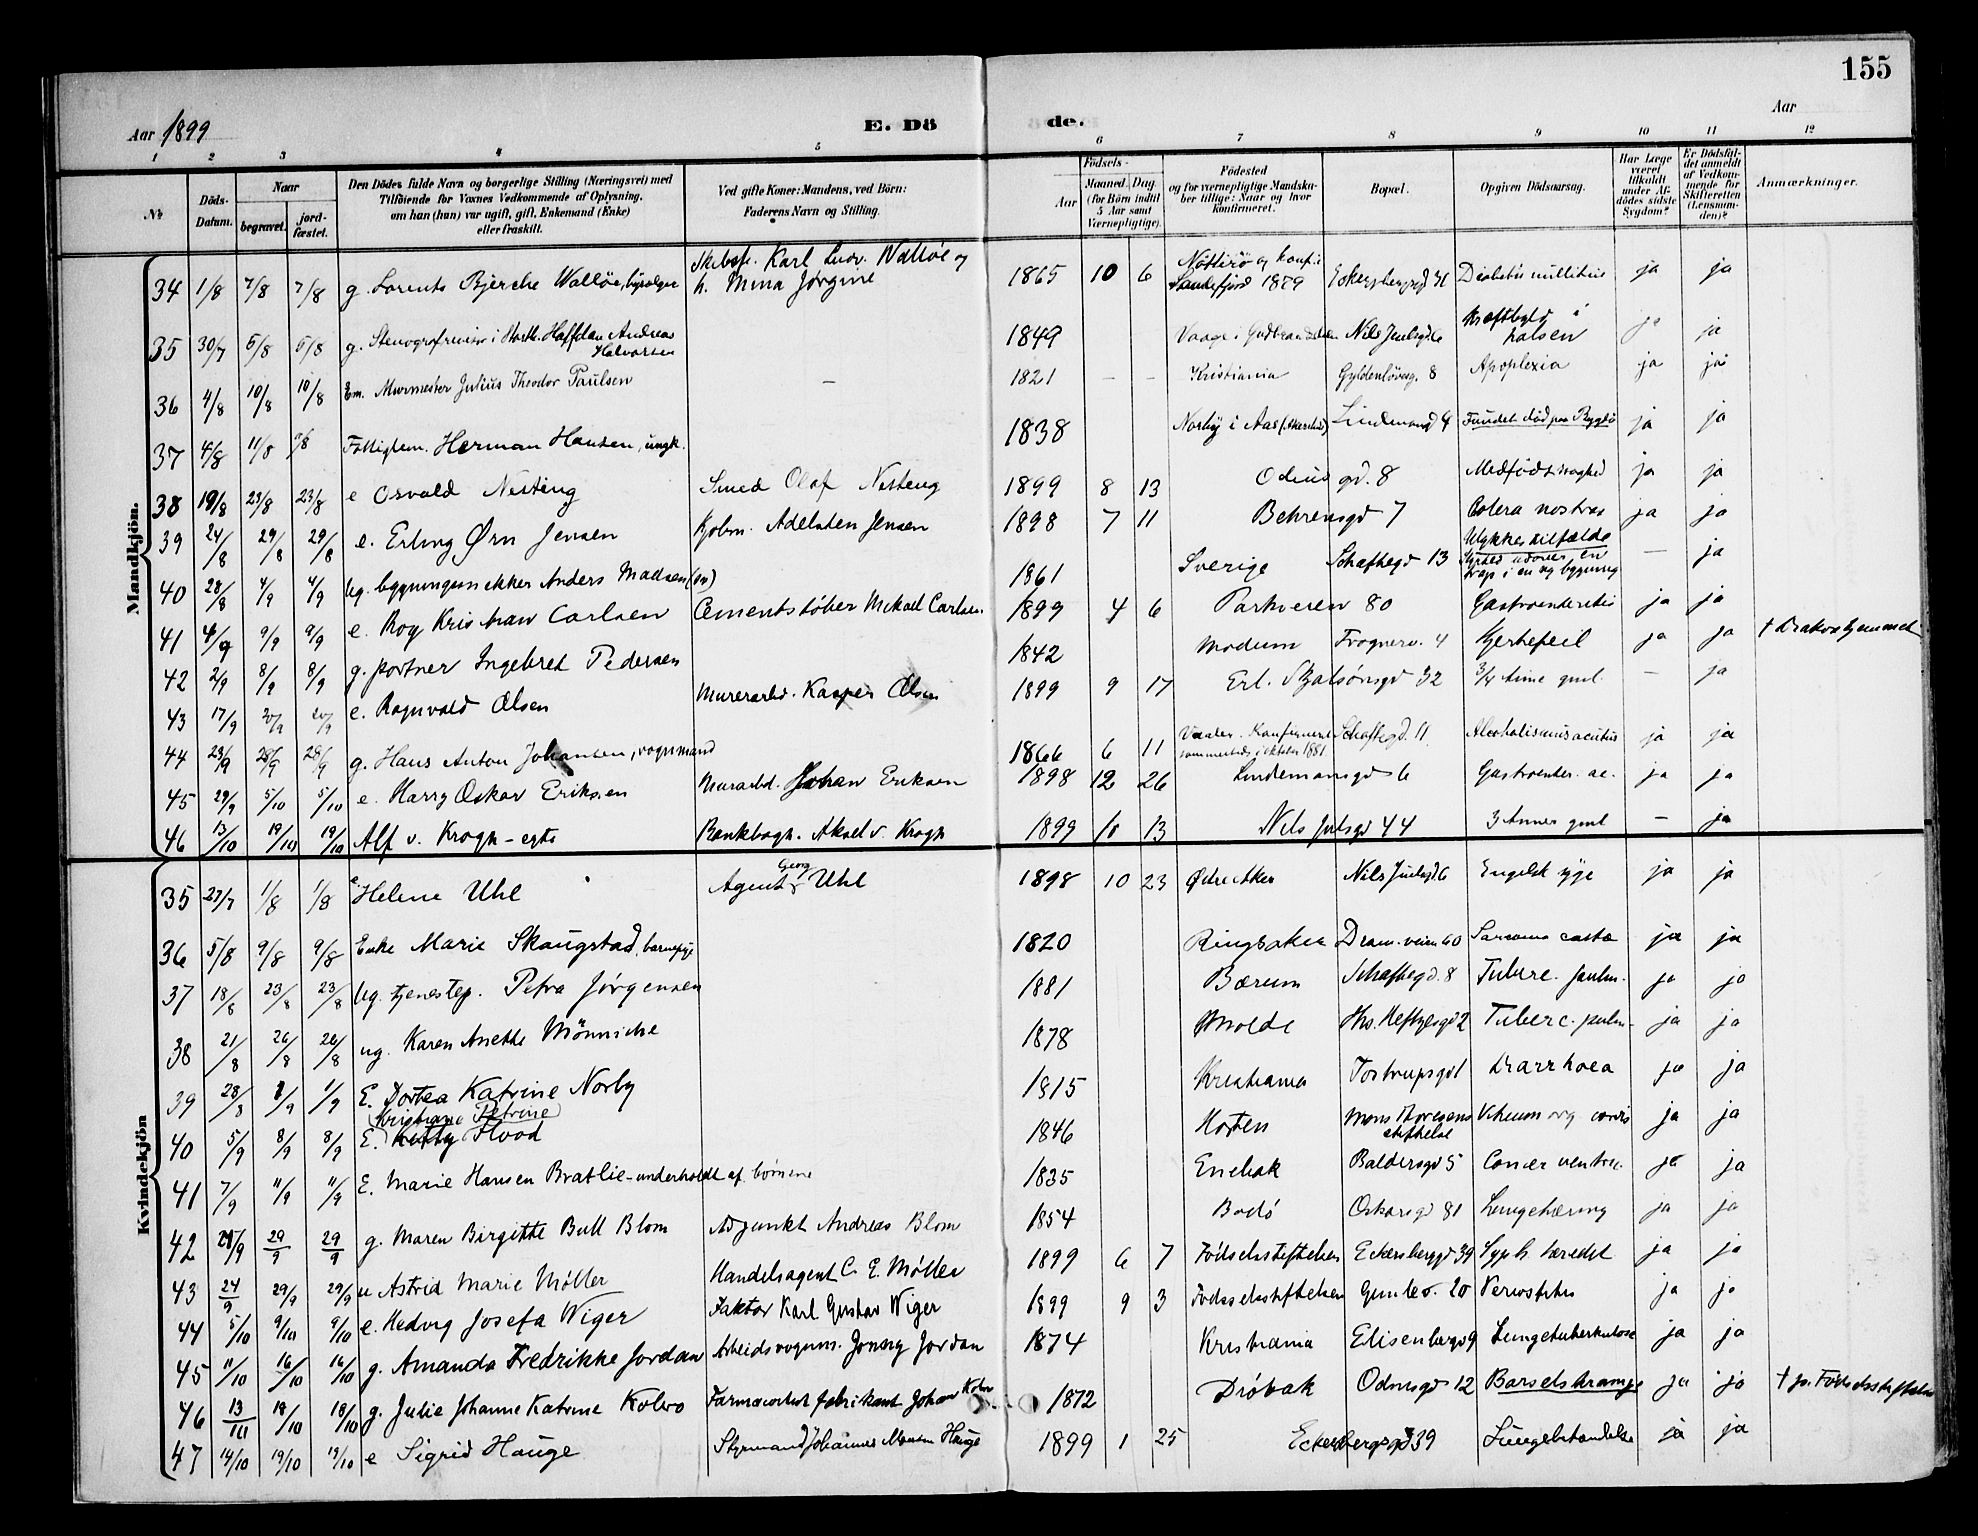 155
Aar 1899 E. Dö de. Aar
1 2 3 4 5 6 7 8 9 10 11 12
№ Döds-Datum. Naar begravet. jord-fæstet. Den Dödes fulde Navn og borgerlige Stilling (Næringsvei) med Tilföiende for Voxnes Vedkommende af Oplysning, om han (hun) var ugift, gift, Enkemand (Enke) eller fraskilt. Ved gifte Koner: Mandens, ved Börn: Faderens Navn og Stilling. Födsels- Aar Maaned. Dag. (for Börn indtil 5 Aar samt Værnepligtige). Födested og for værnepligtige Mandskaber tillige: Naar og hvor konfirmeret. Bopæl. Opgiven Dödsaarsag. Har Læge været tilkaldt under Afdödes sidste Sygdom? Er Dödsfaldet anmeldt af Vedkommende for Skifteretten (Lensmanden)? Anmærkninger.
Mandkjön.
34 1/8 7/8 7/8 g. Lorents Bjerche Walløe, Skibsf. Karl Ludv. Walløe og h. Mina Jørgine 1865 10 6 Nøtterø og konf. i Sandefjord 1879 Eckersbergsgd 31 Diabetis mellitus ja ja
35 30/7 5/8 5/8 g. Stenografrevisor i Storth. Haffdan Andreas Halvorsen 1849 Vaage i Gudbrandsdalen Nils Juelsgd 6 Kræftbyld i halsen ja ja
36 4/8 10/8 10/8 Em. Murmester Julius Theodor Paulsen – 1821 – – Kristiania Gyldenløvesg. 8 Apoplexia ja ja
37 4/8 11/8 9/8 Fattiglem. Herman Hansen, ungk. 1838 Norby i Aas Lindemansgd 4 Fundet död paa Bygdö ja ja
38 19/8 23/8 23/8 e Osvald Nesteng Smed Olaf Nesteng 1899 8 13 Odins gd. 8 Medfödt svaghed ja ja
39 24/8 29/8 29/8 e. Erling Ørn Jensen Kjøbm. Adelsten Jensen 1898 7 11 Behrensgd 7 Colera nostras ja ja
40 28/8 4/9 4/9 ug. bygningssnekker Anders Madsen (en) 1861 Sverige Schaftegd 13 Ulykkestilfælde Styrted udover en trap i en ny bygning – ja
41 4/9 9/9 9/9 e. Roy Kristian Carlsen Cementstøber Mikael Carlsen 1899 4 6 Parkveien 80 Gastroenteritis ja ja
42 2/9 8/9 8/9 g. portner Ingebret Pedersen 1842 Modum Frognerv. 4 Hjertefeil ja ja †
43 17/9 20/9 20/9 e. Ragnvald Olsen Murerarbd. Kasper Olsen 1899 9 17 Erl. Skjalsönsgd 32 3/4 time gml. – ja
44 23/9 28/9 28/9 g. Hans Anton Johansen, vognmand 1866 6 11 Vaaler. Konfirmeret sammesteds i oktober 1881. Schaftegd. 11. Alcoholismus acutus ja ja
45 29/9 5/10 5/10 e. Harry Oskar Eriksen Murarbd. Johan Eriksen 1898 12 26 Lindemansgd 6 Gastroenter. ac. ja ja
46 13/10 19/10 19/10 Alf v. Krogh – egte Bankbogh. Aksel v. Krogh 1899 10 13 Nils Julsgd 44 3 timer gml – ja
Kvindekjön
35 27/7 1/8 1/8 e Helene Uhl Agent Georg Uhl 1898 10 23 Østre Aker Nils Juelsgd. 6 Engelsk syge ja ja
36 5/8 9/8 9/8 Enke Marie Skaugstad, barnepige 1820 Ringsaker Dram. veien 60 Sarcoma costæ ja ja
37 18/8 23/8 23/8 ug. tjenestep. Petra Jørgensen 1881 Bærum Schaftegd. 8 Tuberc. pulm. ja ja
38 21/8 26/8 26/8 ug. Karen Anette Mönniche 1878 Molde Ths. Heftyesgd 2 Tuberc. pulm. ja ja
39 28/8 1/9 1/9 E. Dortea Katrine Norby 1815 Kristiania Tostrupsgd 1 Diarrhoea ja ja
40 5/9 8/9 8/9 E. (Kristiane Petrine) Kitty Flood 1846 Horten Mons Thoresens stiftelse Vitium org. cordis ja ja
41 7/9 11/9 11/9 E. Marie Hansen Bratlie – underholdt af börnene 1835 Enebak Baldersgd 5 Cancer ventric. ja ja
42 21/9 29/9 29/9 g. Maren Birgitte Bull Blom Adjunkt Andreas Blom 1854 Bodö Oskarsgd 81 Lungetæring ja ja
43 24/9 29/9 29/9 u Astrid Marie Möller Handelsagent C. E. Möller 1899 6 7 Födselsstiftelsen Eckersbergsgd 39 Syph. heredit. ja ja
44 5/10 9/10 9/10 e. Hedvig Josefa Wiger Faktor Karl Gustav Wiger 1899 9 3 Fødselsstiftelsen Gimlev. 20 Periostitis ja ja
45 11/10 16/10 16/10 g. Amanda Fredrikke Jordan Arbeidsvognm. Jonny Jordan 1874 Kristiania Elisenbergv 9 Lungetuberkulose ja ja
46 13/10 18/10 18/10 g. Julie Johanne Katrine Kolvo Farmaceutisk fabrikant Johan Kolvo 1872 Dröbak Odinsgd 12 Barselskrampe ja ja † paa Födselsstiftelsen
47 14/10 19/10 19/10 e Sigrid Hauge Styrmand Johannes Monsen Hauge 1899 1 25 Eckersbergsgd 39 Lungebetændelse ja ja